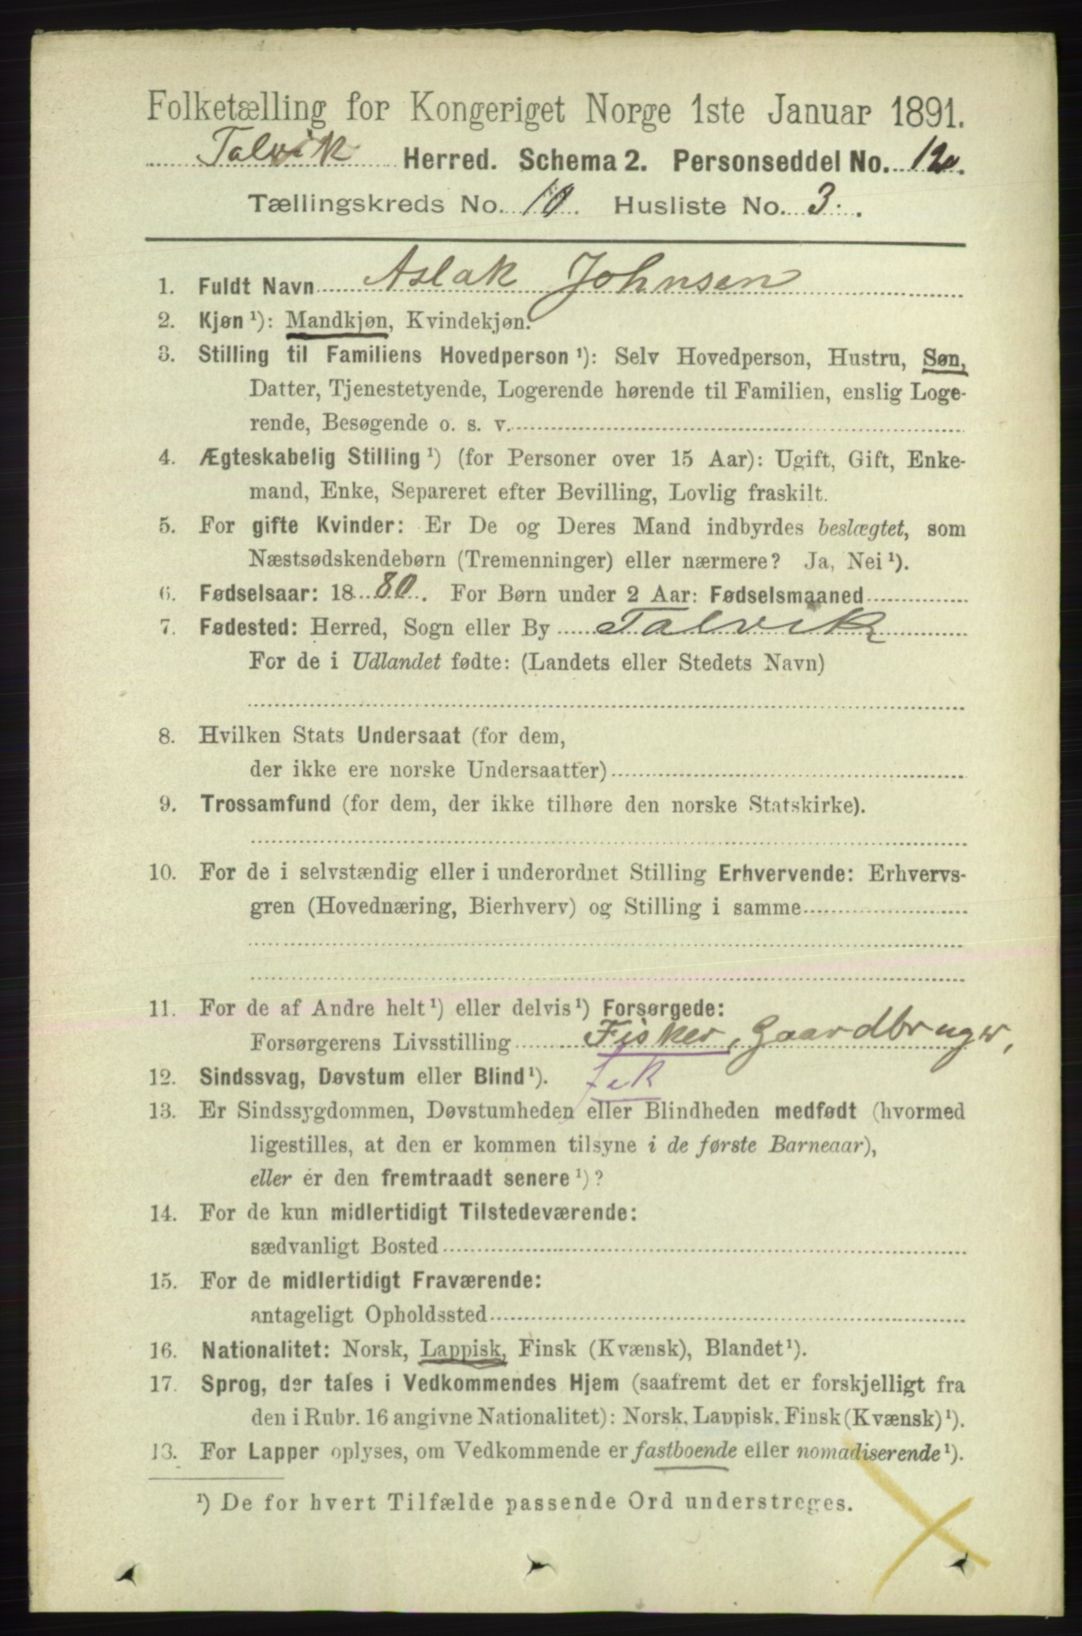 Folketælling for Kongeriget Norge 1ste Januar 1891.
Talvik Herred. Schema 2. Personseddel No. 12.
Tællingskreds No. 10. Husliste No. 3.
1. Fuldt Navn Aslak Johnsen
2. Kjøn ¹): Mandkjøn, Kvindekjøn.
3. Stilling til Familiens Hovedperson ¹): Selv Hovedperson, Hustru, Søn,
Datter, Tjenestetyende, Logerende hørende til Familien, enslig Loge-
rende, Besøgende o. s. v.
4. Ægteskabelig Stilling ¹) (for Personer over 15 Aar): Ugift, Gift, Enke-
mand, Enke, Separeret efter Bevilling, Lovlig fraskilt.
5. For gifte Kvinder: Er De og Deres Mand indbyrdes beslægtet, som
Næstsødskendebørn (Tremenninger) eller nærmere? Ja, Nei ¹).
6. Fødselsaar: 1880. For Børn under 2 Aar: Fødselsmaaned
7. Fødested: Herred, Sogn eller By Talvik
For de i Udlandet fødte: (Landets eller Stedets Navn)
8. Hvilken Stats Undersaat (for dem,
der ikke ere norske Undersaatter)
9. Trossamfund (for dem, der ikke tilhøre den norske Statskirke).
10. For de i selvstændig eller i underordnet Stilling Erhvervende: Erhvervs-
gren (Hovednæring, Bierhverv) og Stilling i samme
11. For de af Andre helt ¹) eller delvis ¹) Forsørgede:
Forsørgerens Livsstilling Fisker, Gaardbruger,
12. Sindssvag, Døvstum eller Blind ¹).
13. Er Sindssygdommen, Døvstumheden eller Blindheden medfødt (hvormed
ligestilles, at den er kommen tilsyne i de første Barneaar),
eller er den fremtraadt senere ¹)?
14. For de kun midlertidigt Tilstedeværende:
sædvanligt Bosted
15. For de midlertidigt Fraværende:
antageligt Opholdssted
16. Nationalitet: Norsk, Lappisk, Finsk (Kvænsk), Blandet ¹).
17. Sprog, der tales i Vedkommendes Hjem (saafremt det er forskjelligt fra
den i Rubr. 16 angivne Nationalitet): Norsk, Lappisk, Finsk (Kvænsk) ¹).
18. For Lapper oplyses, om Vedkommende er fastboende eller nomadiserende ¹).
¹) De for hvert Tilfælde passende Ord understreges.